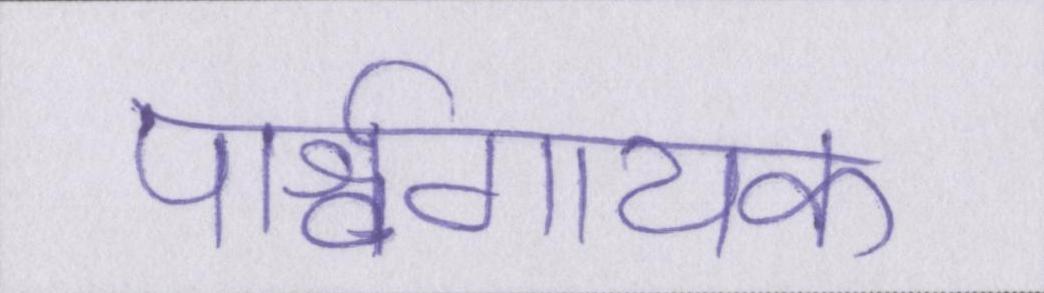 पार्श्वगायक